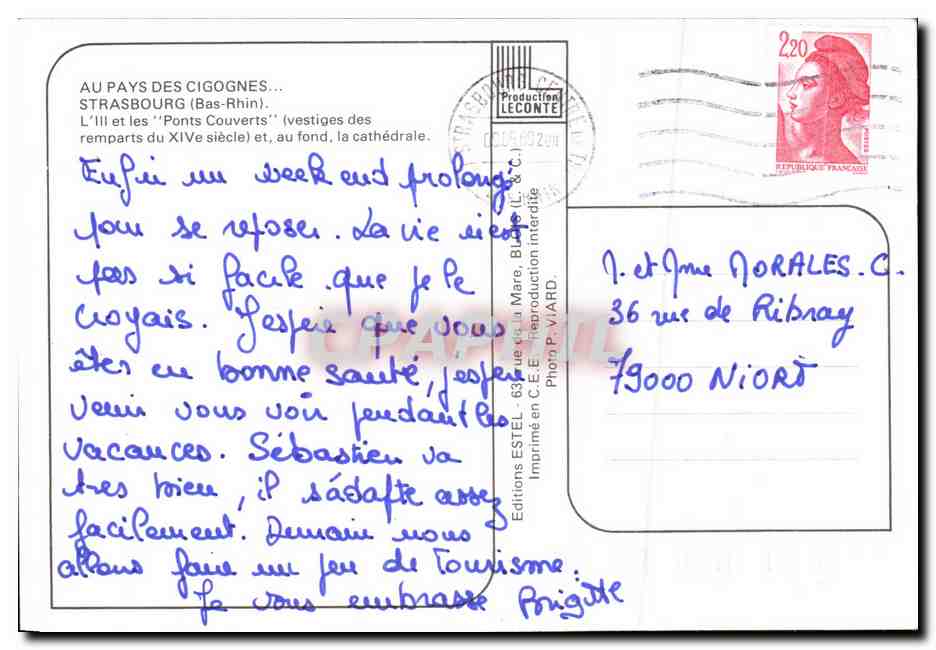 AU PAYS DES CIGOGNES...
STRASBOURG (Bas-Rhin).
L'Ill et les "Ponts Couverts" (vestiges des
remparts du XIVe siècle) et, au fond, la cathédrale.
Enfin un week end prolongé
pour se reposer. La vie n'est
pas si facile que je le
croyais. J'espère que vous
êtes en bonne santé, j'espère
venir vous voir pendant les
vacances. Sébastien va
très bien, il s'adapte assez
facilement. Demain nous
allons faire un peu de tourisme.
Je vous embrasse Brigitte
Production
LECONTE
STRASBOURG CENTRE
Editions ESTEL - 63, rue de la Mare, BLOIS (L. & C.)
Imprimé en C.E.E. - Reproduction interdite
Photo P. VIARD.
CPAPHIL
2,20
REPUBLIQUE FRANÇAISE
POSTES
M. et Mme MORALES. C.
36 rue de Ribray
79000 NIORT